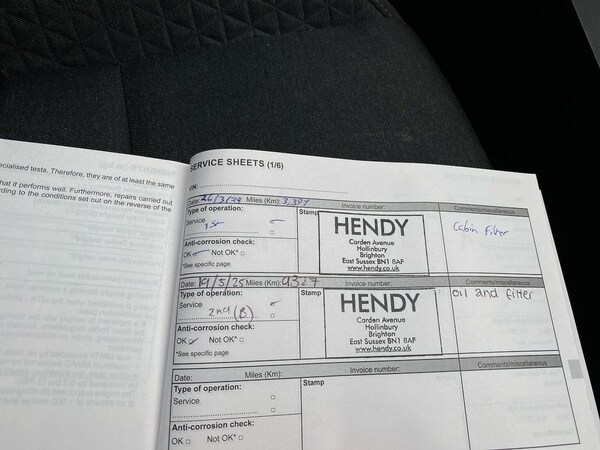 ecialised tests. Therefore, they are of at least the same
hat it performs well. Furthermore, repairs carried out
rding to the conditions set out on the reverse of the
SERVICE SHEETS (1/6)
VIN:
Date: 26/3/24 Miles (Km): 3,397 Invoice number: Comments/miscellaneous
Type of operation:
Service
1st
Anti-corrosion check:
OK Not OK*
*See specific page
Stamp
HENDY
Carden Avenue
Hollinbury
Brighton
East Sussex BN1 8AF
www.hendy.co.uk
Cabin Filter
Date: 19/5/25 Miles (Km): 9327 Invoice number: Comments/miscellaneous
Type of operation:
Service
2nd (B)
Anti-corrosion check:
OK Not OK*
*See specific page
Stamp
HENDY
Carden Avenue
Hollinbury
Brighton
East Sussex BN1 8AF
www.hendy.co.uk
oil and filter
Date: Miles (Km): Invoice number: Comments/miscellaneous
Type of operation:
Service
Anti-corrosion check:
OK Not OK*
Stamp